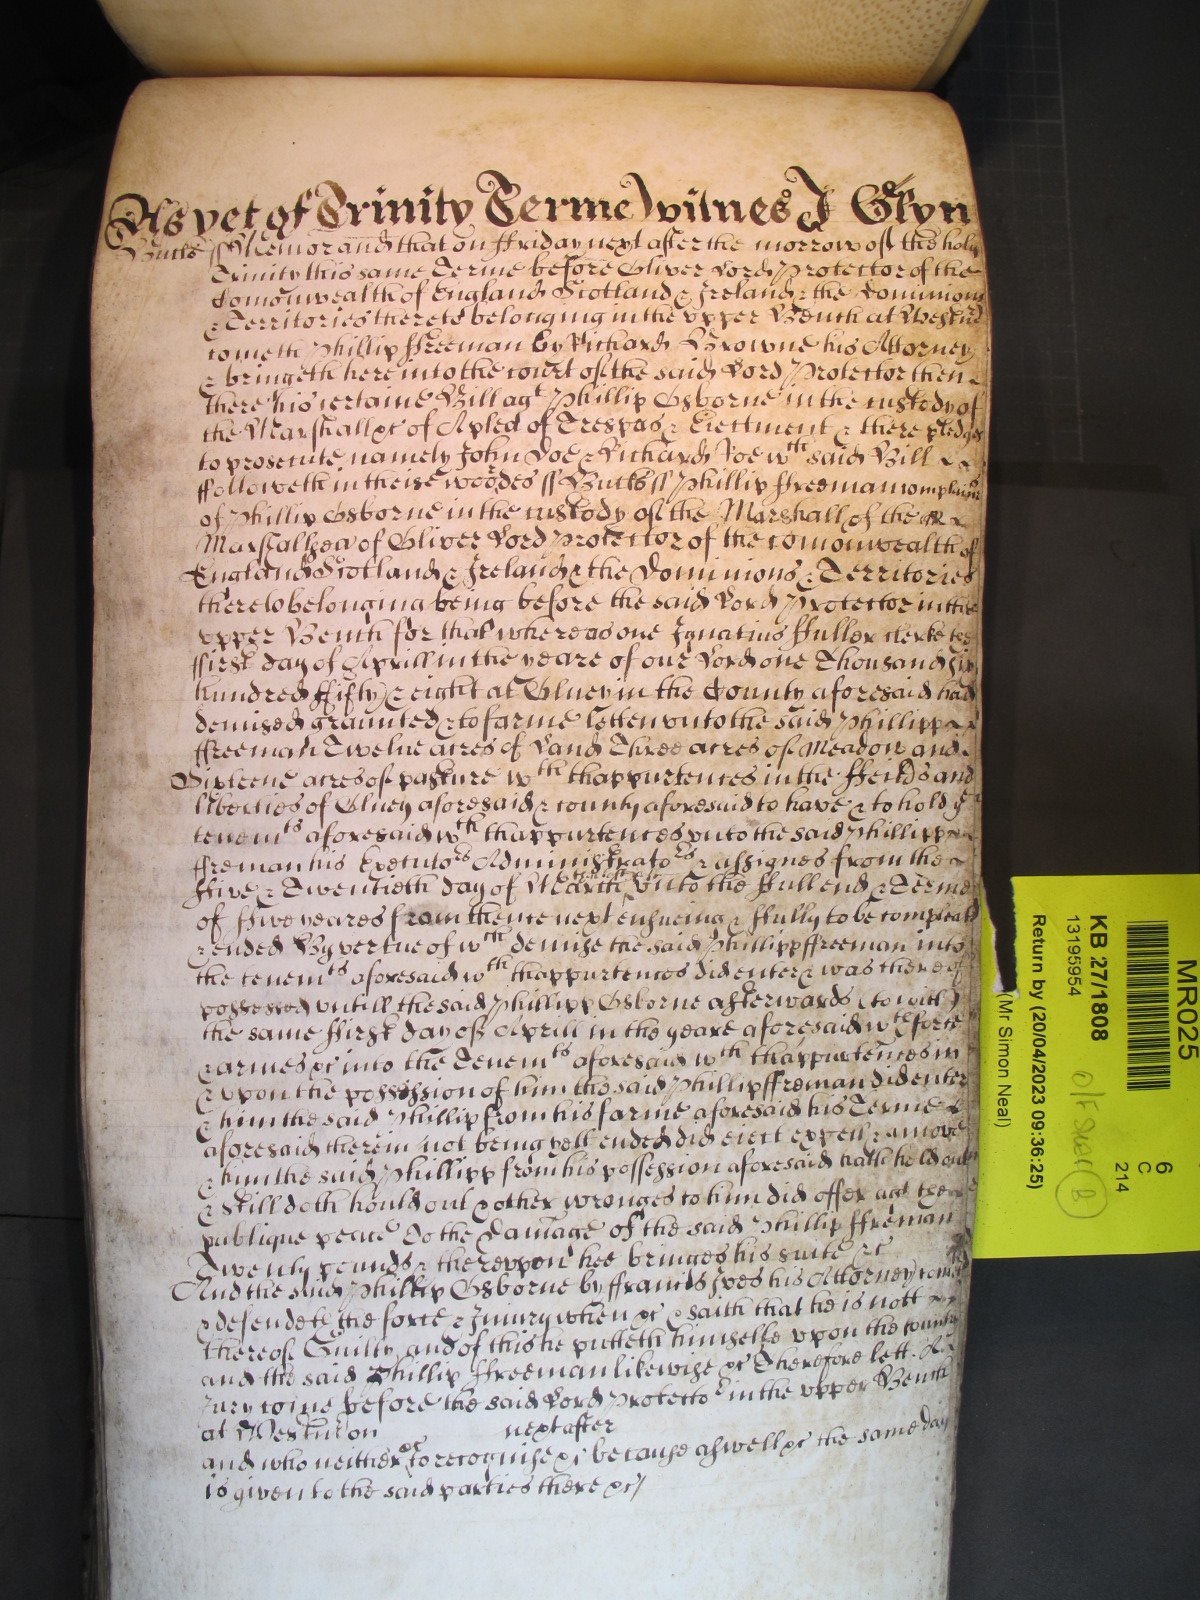 As yet of Trinity Terme Witnes J Glyn
Bucks ss Memorand that on ffriday next after the morrow of the holy
Trinity this same Terme before Oliver Lord Protector of the
Comonwealth of England Scotland & Ireland & the Dominions
& Territories thereto belonging in the vpper Bench at Westmr
cometh Phillip ffreeman by Richard Browne his Attorney
& bringeth here into the court of the said Lord Protector then
there his certaine Bill agt Phillip Osborne in the custody of
the Marshall &c of A plea of Trespas & Eiectment & there pledges
to prosecute namely John Doe & Richard Roe wth said Bill
ffolloweth in theise wordes ss Bucks ss Phillip ffreeman complaines
of Phillip Osborne in the custody of the Marshall of the
Marshalsea of Oliver Lord Protector of the comonwealth of
England Scotland & Ireland & the Dominions & Territories
thereto belonging being before the said Lord Protector in the
vpper Bench for that whereas one Ignatius ffuller clerke the
ffirst day of Aprill in the yeare of our Lord one Thousand six
hundred ffifty & eight at Olney in the County aforesaid had
demised graunted & to farme letten vnto the said Phillipp
ffreeman Twelue acres of Land Three acres of Meadow and
Sixteene acres of pasture wth thappurtences in the ffeilds and
liberties of Olney aforesaid & county aforesaid to have & to hold ye
tenemts aforesaid wth thappurtences vnto the said Phillipp
ffreman his Executors Administrators & assignes from the
ffive & Twentieth day of March vnto the ffull end & Terme
of ffive yeares from thence next ensueing & ffully to be compleat
& ended By vertue of wch demise the said Phillipp ffreeman into
the tenemts aforesaid wth thappurtences did enter & was thereof
possessed vntill the said Phillipp Osborne afterwards (to wit)
the same ffirst day of Aprill in the yeare aforesaid wth force
& armes &c into the Tenemts aforesaid wth thappurtences in
& vpon the possession of him the said Phillip ffreman did enter
& him the said Phillip from his farme aforesaid his Terme
aforesaid therein not being yett ended did eiect expell & amove
& him the said Phillipp from his possession aforesaid hath held out
& still doth hould out & other wronges to him did offer agt the
publique peace To the Damage of the said Phillip ffreman
Twenty pounds & therevpon hee bringes his suite &c
And the said Phillip Osborne by ffrancis Ives his Attorney cometh
& defendeth the force & Iniury when &c & saith that he is nott
thereof Guilty and of this he putteth himselfe vpon the country
and the said Phillip ffreeman likewise &c Therefore lett A
Jury come before the said Lord Protector in the vpper Bench
at Westmr on next after
and who neither &c to recognise &c because aswell &c the same day
is given to the said parties there &c/
MR025
6
C
214
KB 27/1808
13195954
Return by (20/04/2023 09:36:25)
(Mr Simon Neal)